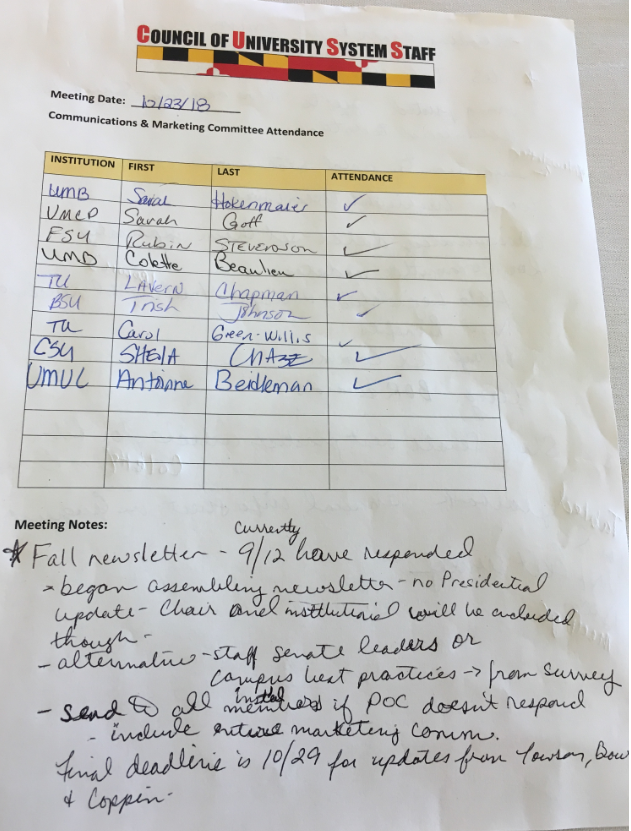 COUNCIL OF UNIVERSITY SYSTEM STAFF
Meeting Date: 10/23/18
Communications & Marketing Committee Attendance
INSTITUTION FIRST LAST ATTENDANCE
UMB Hokenmaier ✓
UMCP Sarah Goff ✓
FSU Rubin STEVENSON ✓
UMB Colette Beaulieu ✓
TU LAVern Chapman ✓
BSU Trish Johnson ✓
TU Carol Green-Willis ✓
CSU SHEilA CHASE ✓
UMUC Antoinne Beidleman ✓
Meeting Notes:
Currently
* Fall newsletter - 9/12 have responded
- began assembling newsletter - no Presidential
update - Chair and institutional will be included
though -
- alternative - staff senate leaders or
campus best practices → from survey
- send to all members if POC doesn't respond
- include entire marketing comm.
Final deadline is 10/29 for updates from Towson, Bow
+ Coppin.